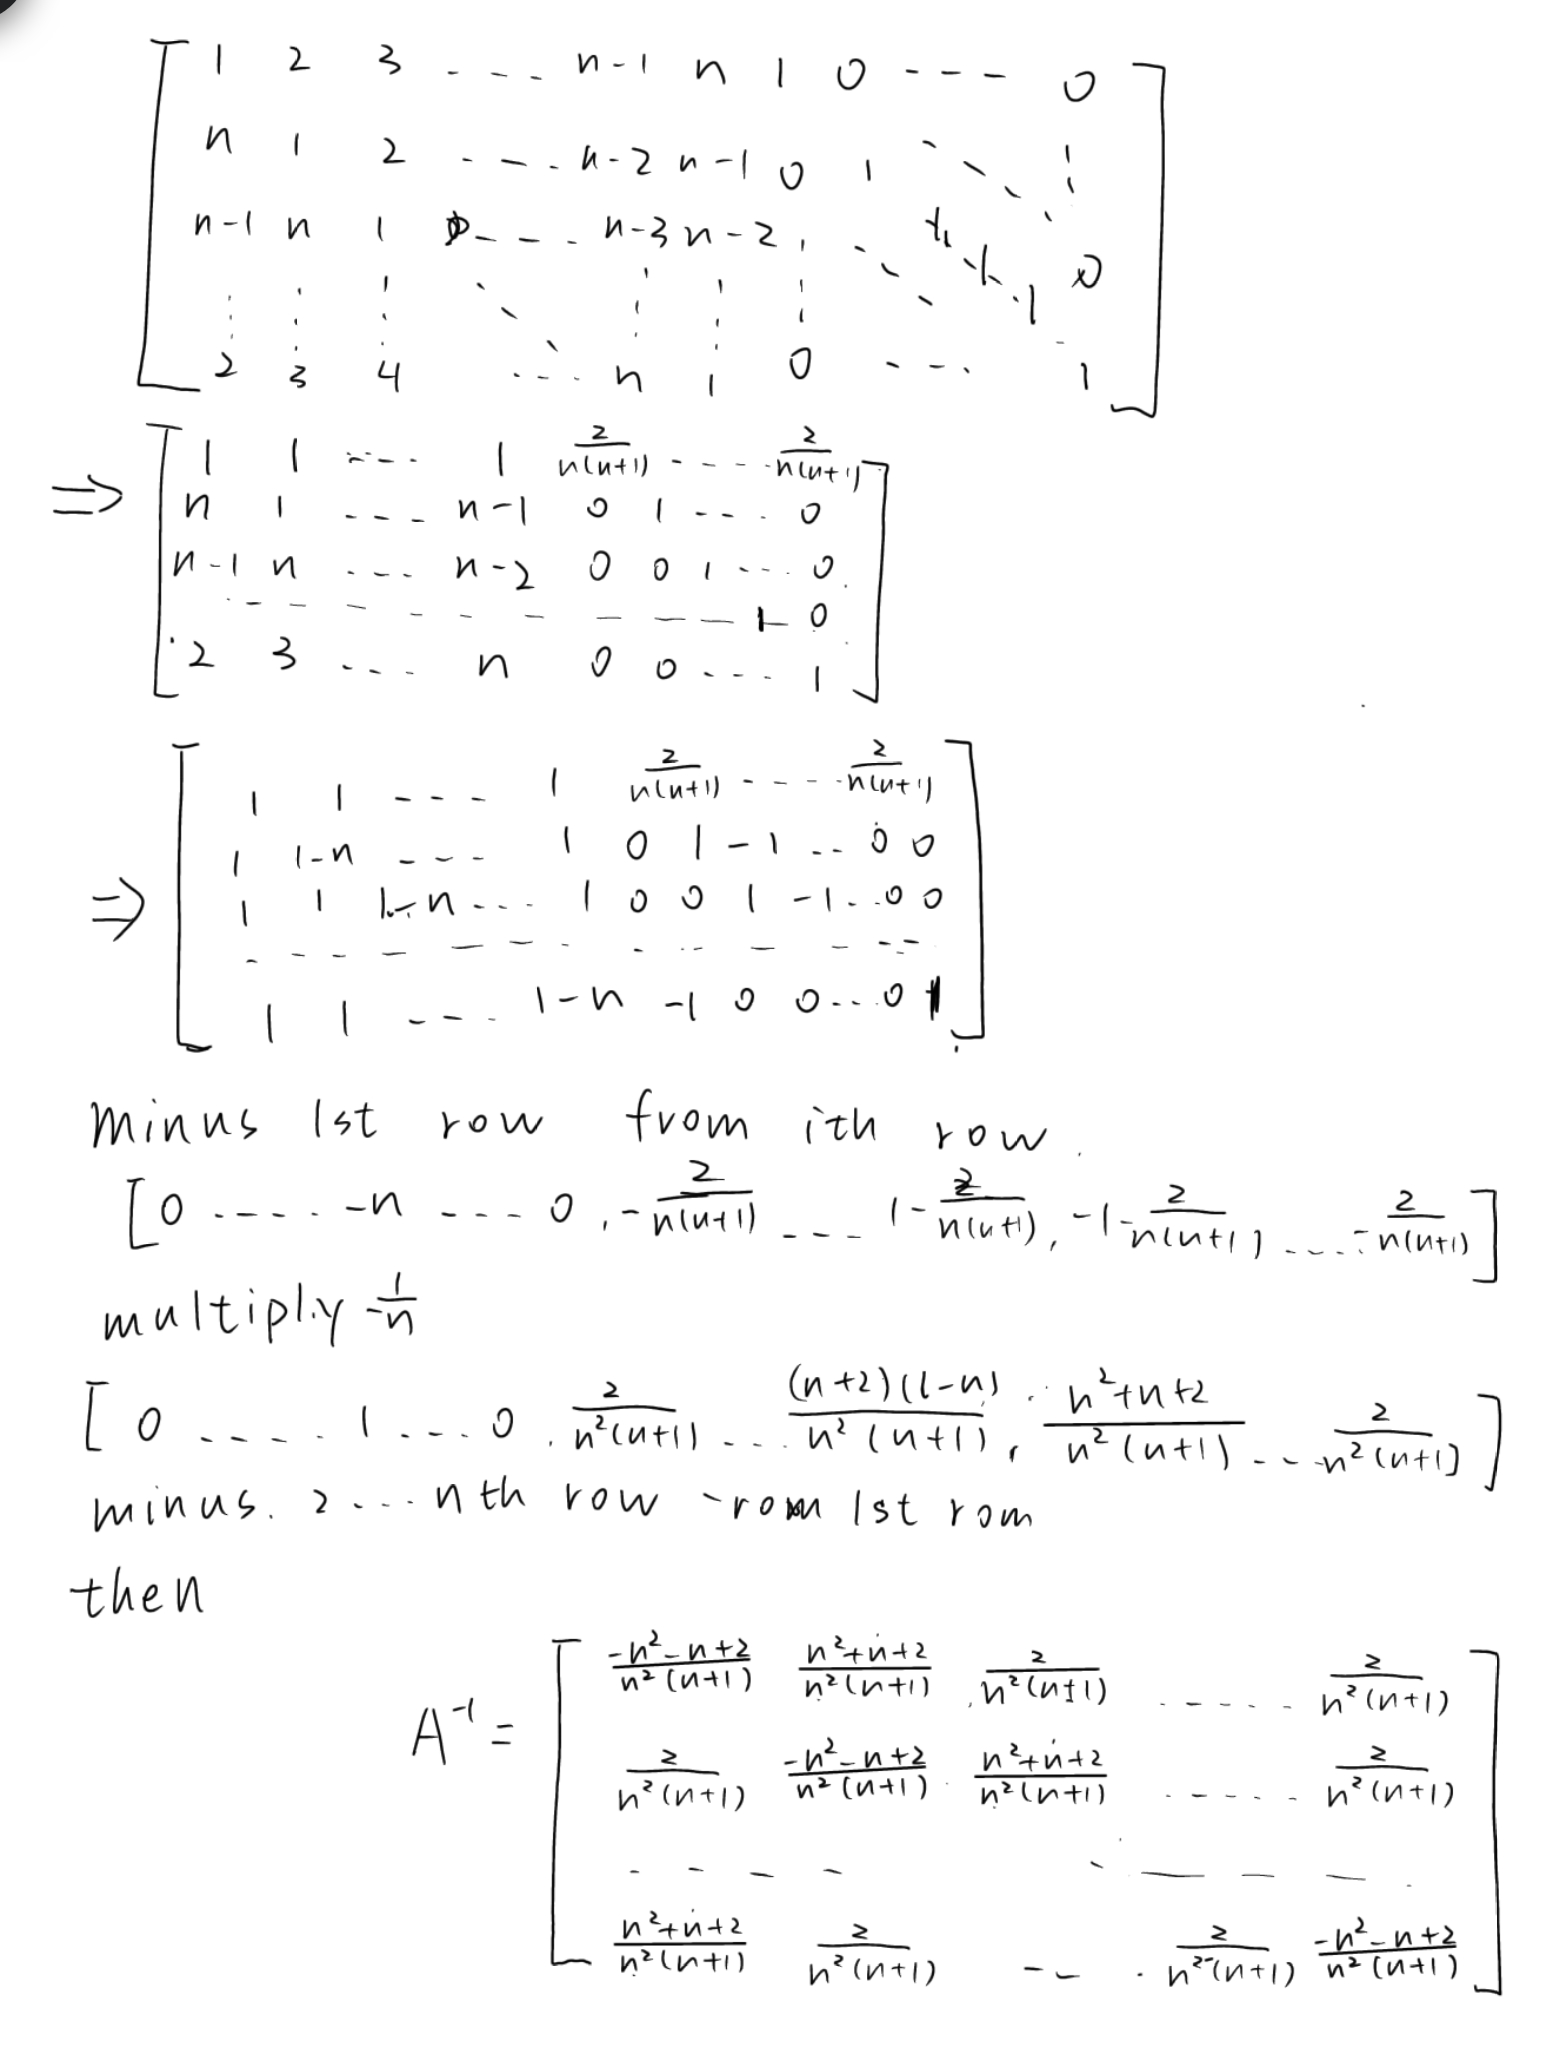 [ 1 2 3 - - - - n-1 n 1 0 - - - 0 ]
[ n 1 2 - - - - n-2 n-1 0 1 ⋱ ⋮ ]
[ n-1 n 1 - - - - n-3 n-2 ⋮ ⋱ 1 0 ]
[ ⋮ ⋮ ⋮ ⋱ ⋮ ⋮ ⋮ ]
[ 2 3 4 ... n 1 0 - - - 1 ]
⇒ [ 1 1 ---- 1 2/(n(n+1)) - - - - 2/(n(n+1)) ]
[ n 1 - - - - n-1 0 1 - - - . 0 ]
[ n-1 n - - - n-2 0 0 1 - - . 0 ]
[ - - - - - - - - - - 1 0 ]
[ 2 3 - - - n 0 0 - - - 1 ]
⇒ [ 1 1 - - - 1 2/(n(n+1)) - - - - 2/(n(n+1)) ]
[ 1 1-n - - - 1 0 1 -1 .. 0 0 ]
[ 1 1 1-n - - - 1 0 0 1 -1 .. 0 0 ]
[ - - - - - - - - - - - - ]
[ 1 1 - - - - 1-n -1 0 0 ... 0 1 ]
minus 1st row from ith row.
[ 0 ----. -n --- 0, -2/(n(n+1)) --- 1-2/(n(n+1)), -1-2/(n(n+1)) ---. -2/(n(n+1)) ]
multiply -1/n
[ 0 ----. 1 ... 0 . 2/(n²(n+1)) --. (n+2)(1-n)/(n²(n+1)), (n²+n+2)/(n²(n+1)) --- 2/(n²(n+1)) ]
minus. 2 ... nth row 1st rom
then
A⁻¹ = [ (-n²-n+2)/(n²(n+1)) (n²+n+2)/(n²(n+1)) 2/(n²(n+1)) ..... 2/(n²(n+1)) ]
[ 2/(n²(n+1)) (-n²-n+2)/(n²(n+1)) (n²+n+2)/(n²(n+1)) ..... 2/(n²(n+1)) ]
[ - - - - - - - - ]
[ (n²+n+2)/(n²(n+1)) 2/(n²(n+1)) -- . 2/(n²(n+1)) (-n²-n+2)/(n²(n+1)) ]